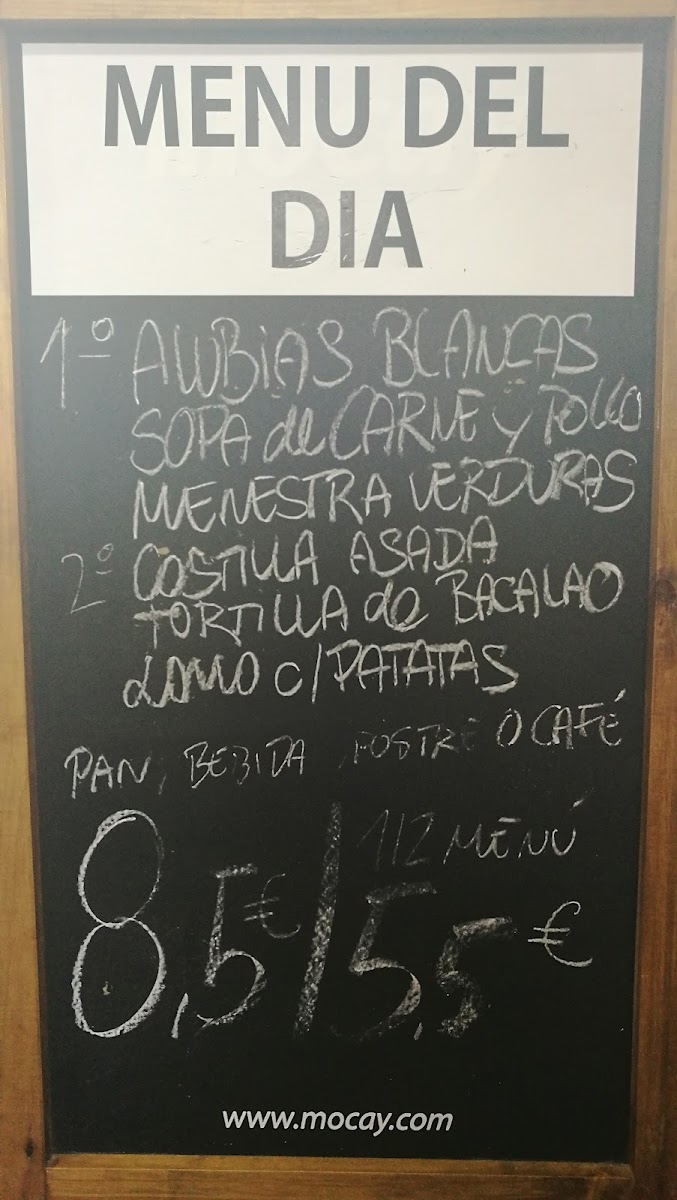 MENU DEL
DIA
1º ALUBIAS BLANCAS
SOPA de CARNE y POLLO
MENESTRA VERDURAS
2º COSTILLA ASADA
TORTILLA de BACALAO
LOMO c/PATATAS
PAN, BEBIDA, POSTRE O CAFÉ
1/2 MENÚ
8,5€/5,5€
www.mocay.com